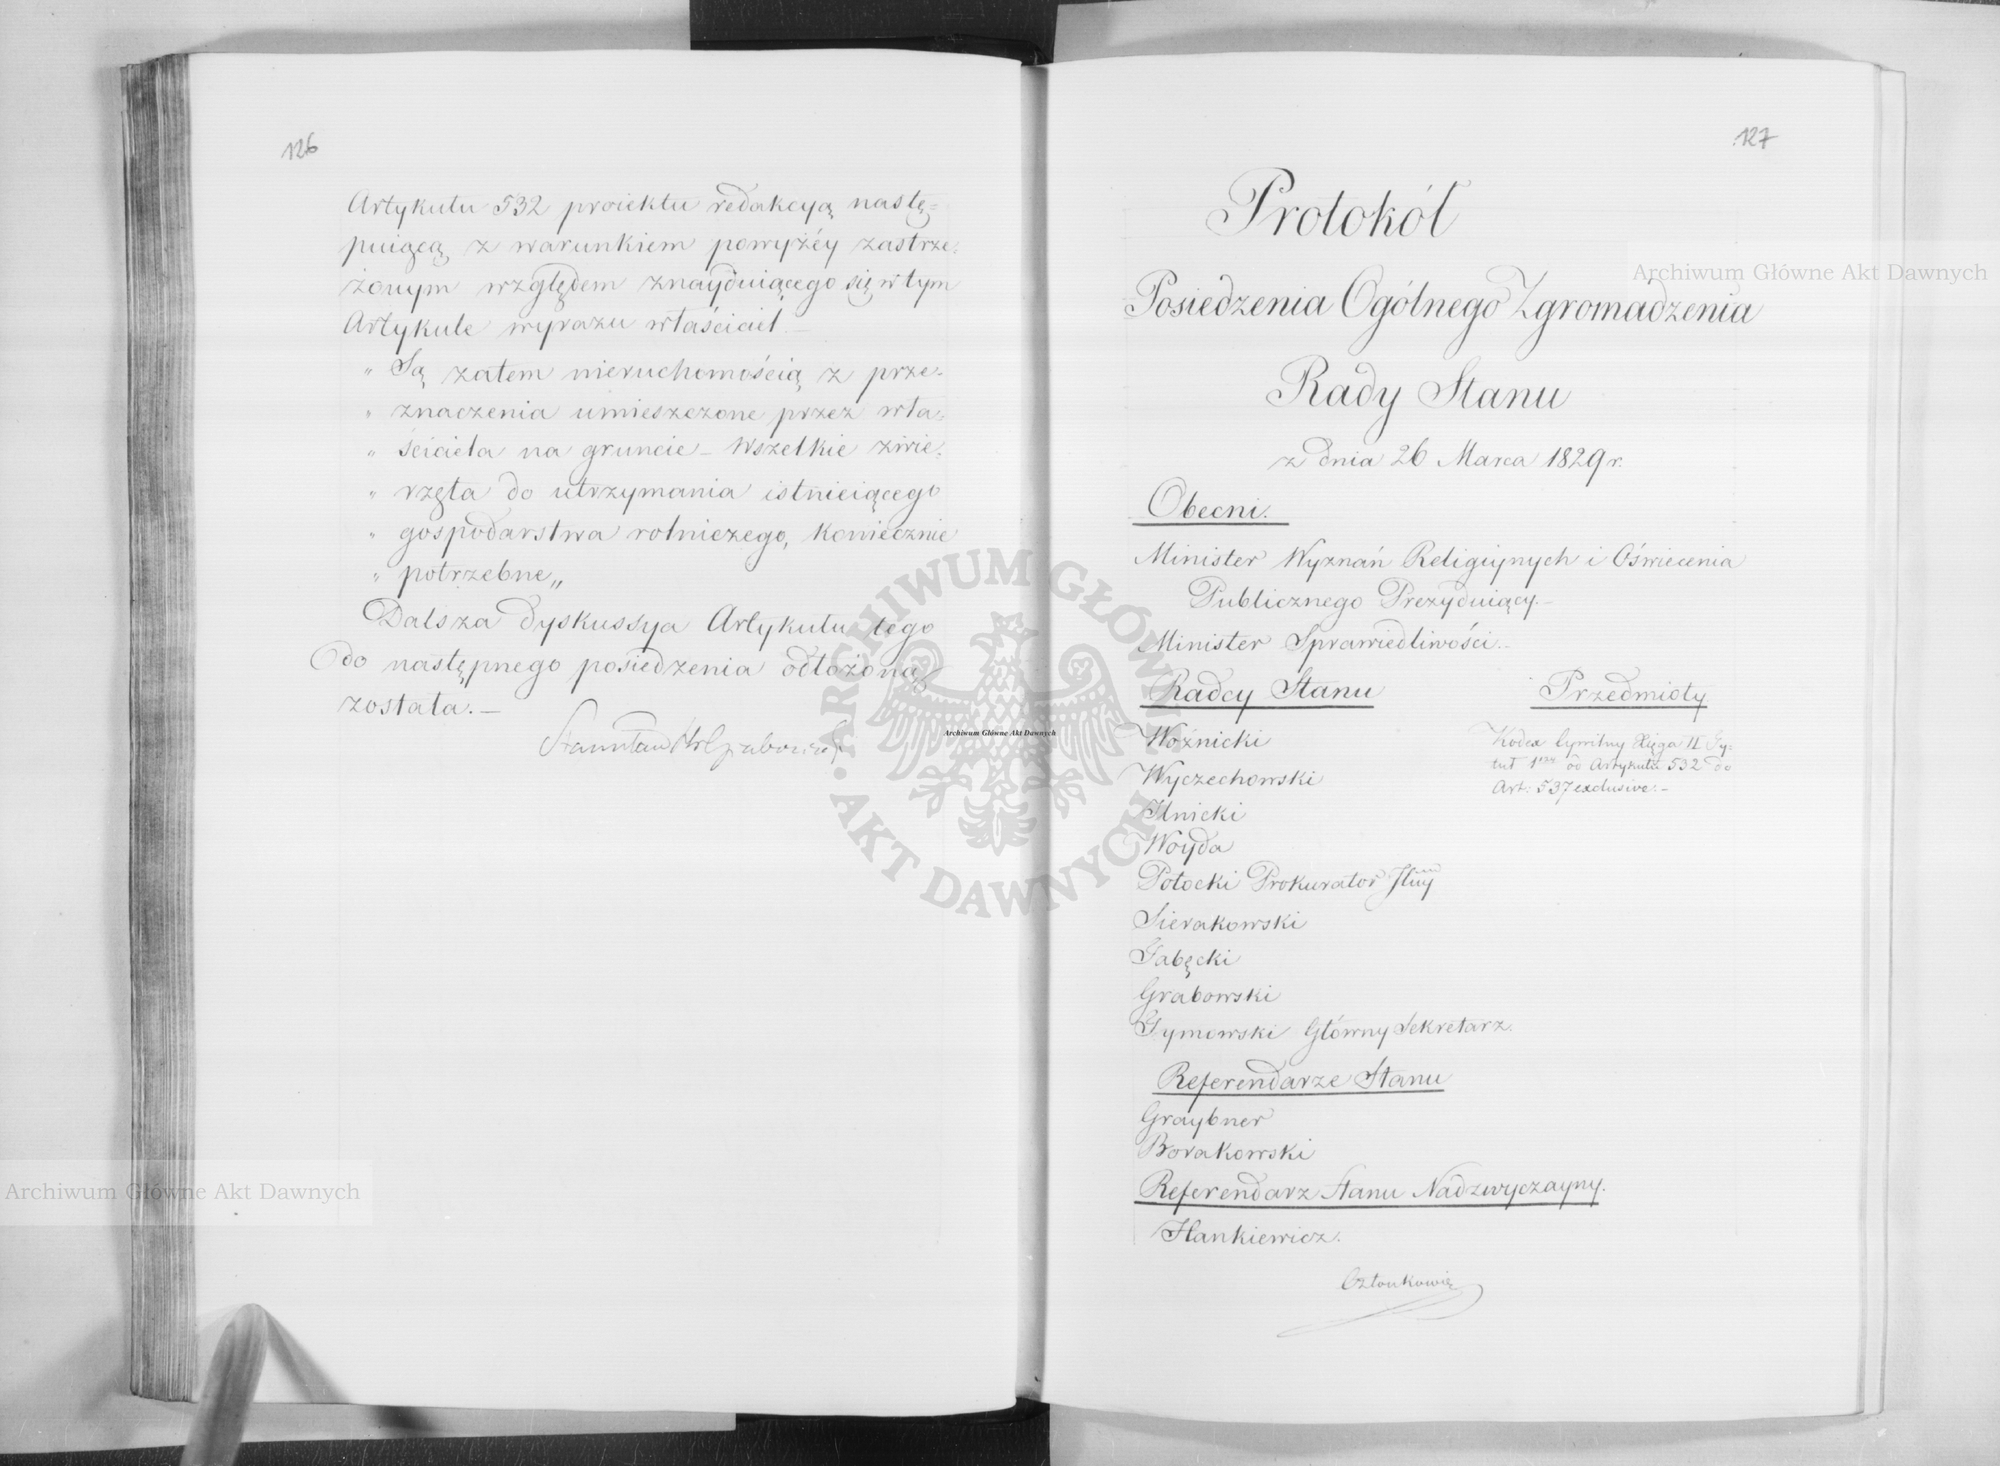 126
Artykułu 532 proiektu redakcyą nastę=
puiącą z warunkiem powyżéy zastrze=
żonym względem znayduiącego się w tym
Artykule wyrazu właściciel. —
„ Są zatem nieruchomością z prze=
„ znaczenia umieszczone przez wła=
„ ściciela na gruncie — Wszelkie zwie=
„ rzęta do utrzymania istnieiącego
„ gospodarstwa rolniczego, koniecznie
„ potrzebne „
Dalsza dyskussya Artykułu tego
do następnego posiedzenia odłożoną
została. —
Stanisław Hr Grabowski
127
Protokół
Posiedzenia Ogólnego Zgromadzenia
Rady Stanu
z dnia 26 Marca 1829 r.
Obecni.
Minister Wyznań Religiynych i Oświecenia
Publicznego Prezyduiący. —
Minister Sprawiedliwości. —
Radcy Stanu
Przedmioty
Woźnicki
Wyczechowski
Ilnicki
Woyda
Potocki Prokurator Jlny
Sierakowski
Gabęcki
Grabowski
Tymowski Główny Sekretarz.
Kodex Cywilny Xięga II Ty=
tuł 1szy od Artykułu 532 do
Art: 537 exclusive. —
Referendarze Stanu
Graybner
Borakowski
Referendarz Stanu Nadzwyczayny.
Hankiewicz.
Członkowie
Archiwum Główne Akt Dawnych
Archiwum Główne Akt Dawnych
Archiwum Główne Akt Dawnych
ARCHIWUM GŁÓWNE · AKT DAWNYCH ·